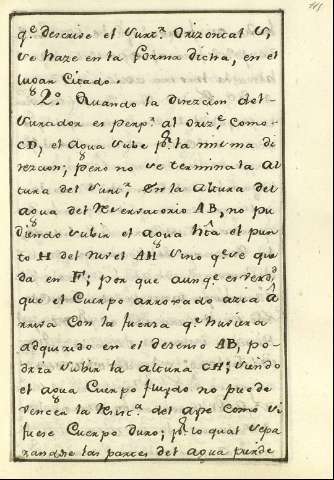 q.e descrive el surt.r Orizontal S,
se haze en la forma dicha, en el
lugar Citado.
2.o Quando la direzcion del
Surtidor es perp.r al oriz.te como
CD, el agua sube p.r la misma di
rezcion; pero no se termina la al
tura del surt.r en la altura del
agua del Reservatorio AB, no pu
diendo subir el agua hta el pun
to H del nivel AH sino q.e se que
da en F; por que aunq.e es verd.d
que el Cuerpo arrojado azia A
rriva Con la fuerza q.e huviera
adquirido en el desenso AB, po
dria subir la altura CH; siendo
el agua Cuerpo fluydo no puede
vencer la Resis.a del ayre como si
fuese Cuerpo duro; p.r lo qual sepa
randose las partes del agua puede